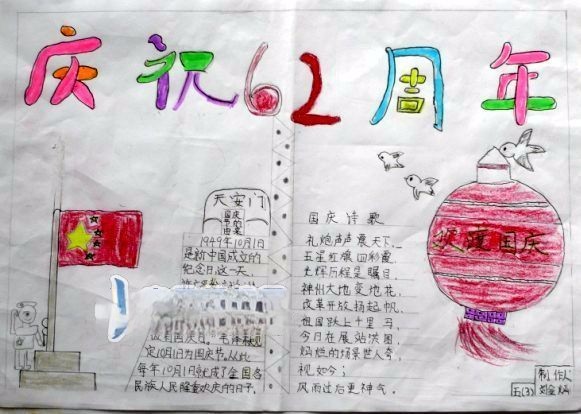 庆祝62周年
天安门
国庆
节的
由来
1949年10月1日
是新中国成立的
纪念日。这一天,
毛泽东
定10月1日为国庆节。从此
每年10月1日就成了全国各
民族人民隆重欢庆的日子。
国庆诗歌
礼炮声声震天下,
五星红旗回彩霞,
光辉历程是瞩目,
神州大地变地花,
改革开放扬起帆,
祖国跃上十里马
今日在展站洪图
灿烂的场景世人奇,
视如今;
风雨过后更神气。
欢度国庆
制作人
五(3)